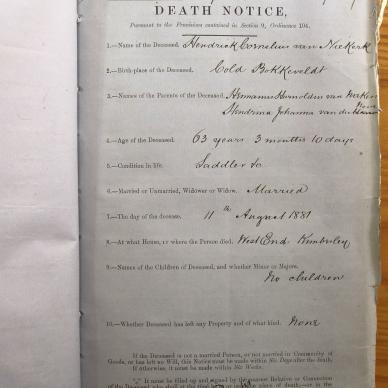 DEATH NOTICE,
Pursuant to the Provisions contained in Section 9, Ordinance 104.
1.—Name of the Deceased. Hendrick Cornelius van Niekerk
2.—Birth-place of the Deceased. Cold Bokkeveldt
3.—Names of the Parents of the Deceased. Hermanus van
Johanna van der
4.—Age of the Deceased. 63 years 3 months 10 days
5.—Condition in life. Saddler
6.—Married or Unmarried, Widower or Widow. Married
7.—The day of the decease. 11th August 1881
8.—At what House, or where the Person died. West End Kimberley
9.—Names of the Children of Deceased, and whether Minor or Majors.
No children
10.—Whether Deceased has left any Property and of what kind. None
If the Deceased is not a married Person, or not married in Community of
Goods, or has left no Will, this Notice must be made within Six Days after the death. If
otherwise, it must be made within Six Weeks.
It must be filled up and signed by the nearest Relative or Connection
of the Deceased who shall at the time be at or near the place of death,